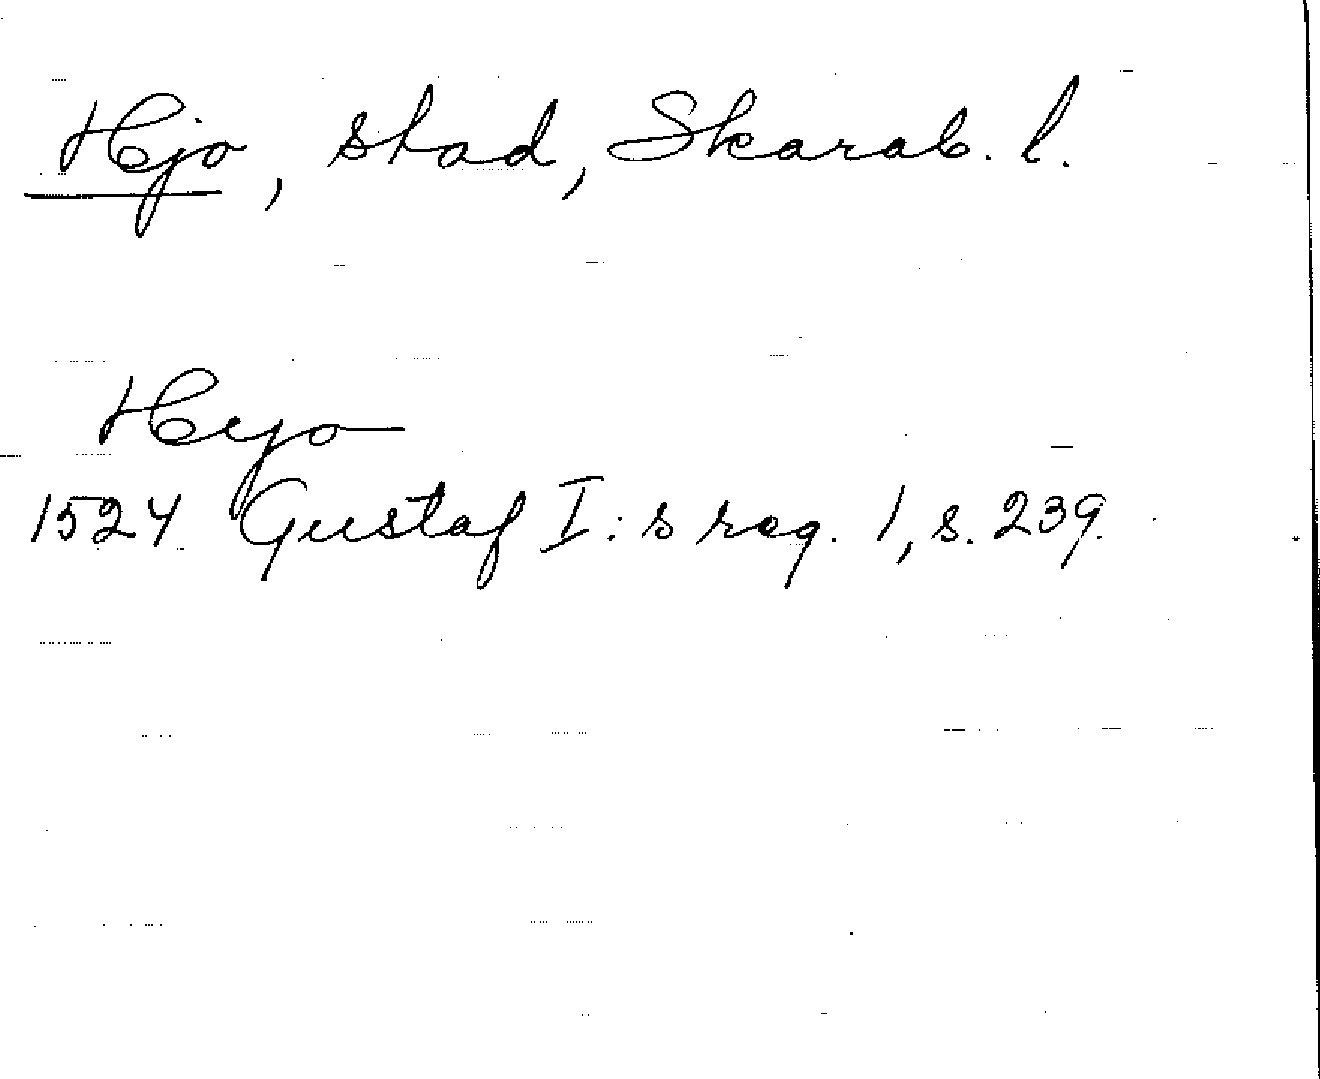 Hjo, stad, Skarab. l.
Heyo
1524 Gustaf I:s reg. 1, s. 239.